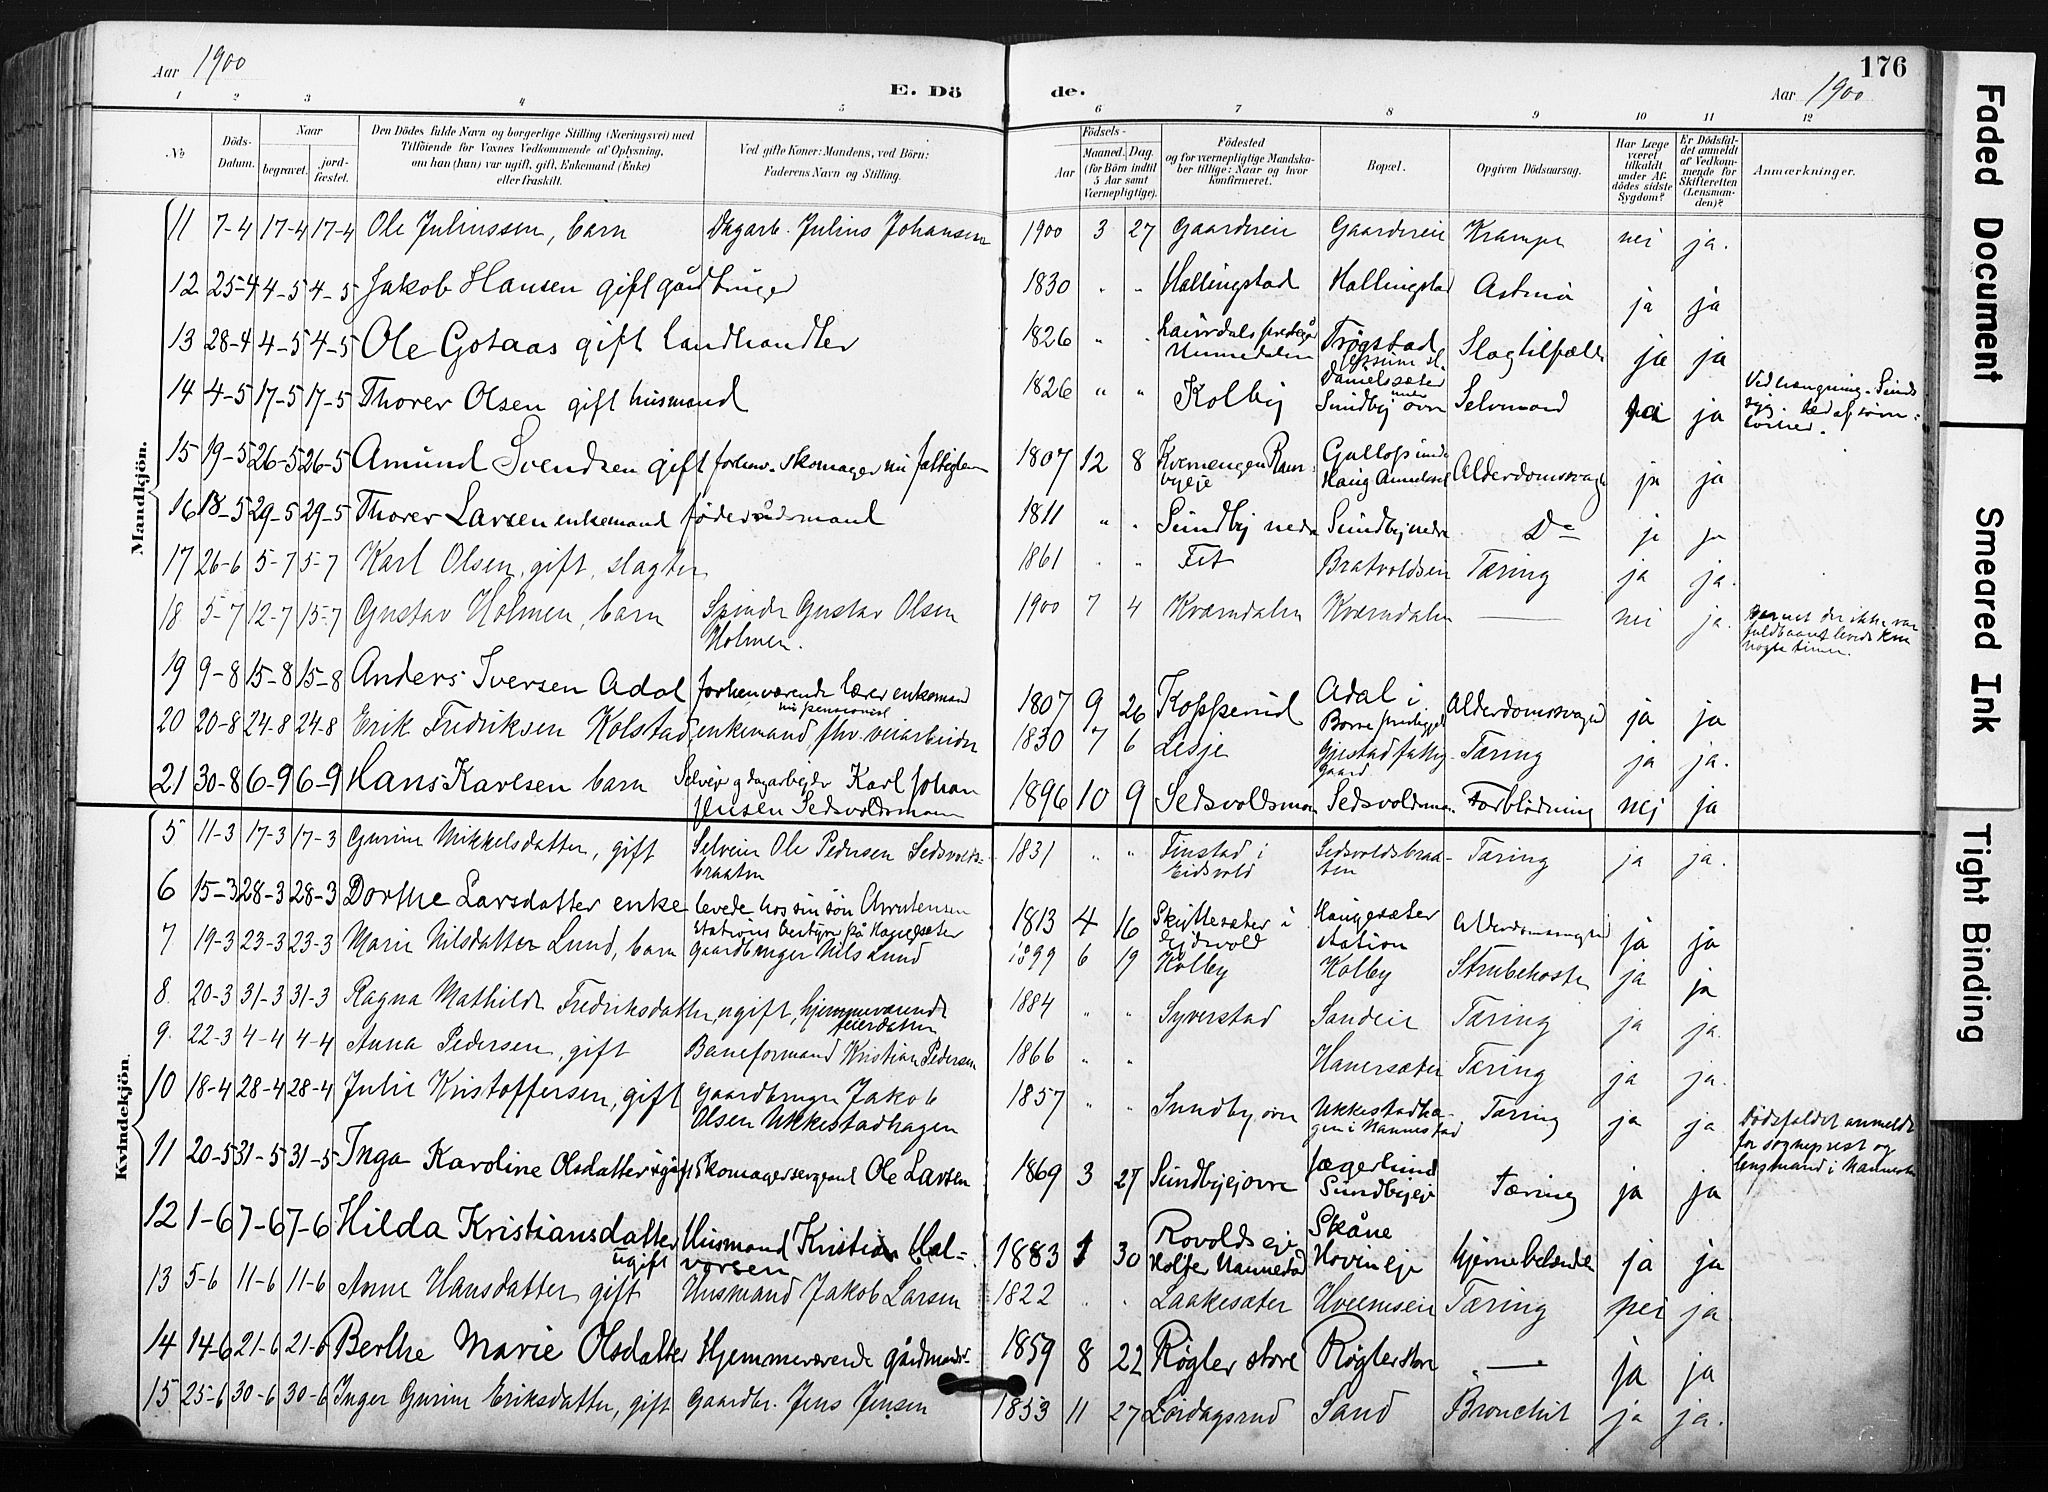 Aar 1900
E. Döde.
176
Aar 1900
1 2 3 4 5 6 7 8 9 10 11 12
No
Döds-Datum.
Naar
begravet.
jord-fæstet.
Den Dödes fulde Navn og borgerlige Stilling (Næringsvei) med
Tilföiende for Voxnes Vedkommende af Oplysning,
om han (hun) var ugift, gift, Enkemand (Enke)
eller fraskilt.
Ved gifte Koner: Mandens, ved Börn:
Faderens Navn og Stilling.
Födsels-
Aar
Maaned. Dag.
(for Börn indtil
5 Aar samt
Værnepligtige).
Födested
og for værnepligtige Mandska-
ber tillige: Naar og hvor
konfirmeret.
Bopæl.
Opgiven Dödsaarsag.
Har Læge
været
tilkaldt
under Af-
dödes sidste
Sygdom?
Er Dödsfal-
det anmeldt
af Vedkom-
mende for
Skifteretten
(Lensman-
den)?
Anmærkninger.
Mandkjön.
11 7-4 17-4 17-4 Ole Juliussen, barn Dagarb. Julius Johansen 1900 3 27 Gaardereie Gaardereie Krampe nei ja.
12 25-4 4-5 4-5 Jakob Hansen gift gårdbruger 1830 " " Hallingstad Hallingstad Astma ja ja
13 28-4 4-5 4-5 Ole Gotaas gift landhandler 1826 " " Trøgstad Slagtilfælde ja ja
14 4-5 17-5 17-5 Thorer Olsen gift husmand 1826 " " Kolbij Danielsæter
under
Sundbij øvre Selvmord ja
Ved hængning.
15 19-5 26-5 26-5 Amund Svendsen gift forhenv. skomager nu fattiglem 1807 12 8 Alderdomssvaghed ja ja
16 18-5 29-5 29-5 Thorer Larsen enkemand føderådsmand 1811 " " Sundbij nedre Sundbij nedre Do ja ja
17 26-6 5-7 5-7 Karl Olsen, gift, slagter 1861 " " Fet Bratvoldseie Tæring ja ja.
18 5-7 12-7 15-7 Gustav Holmen, barn Gustav Olsen
Holmen. 1900 7 4 Kværndalen Kværndalen — nei ja.
Barnet der ikke var
fuldbaaret levede kun
nogle timer.
19 9-8 15-8 15-8 Anders Iversen Adal forhenværende lærer enkemand
nu pensionist 1807 9 26 Kopperud Adal i
Alderdomssvaghed ja ja
20 20-8 24-8 24-8 Erik Fredriksen Kolstad, enkemand, fhv. veiarbeider 1830 7 6 Lesje Gjestad fattig-
gaard Tæring ja ja.
21 30-8 6-9 6-9 Hans Karlsen barn Selveier og dagarbejder Karl Johan
Jensen Sedsvoldsmoen 1896 10 9 Sedsvoldsmoen Sedsvoldsmoen Forblödning nej ja
Kvindekjön.
5 11-3 17-3 17-3 Gurine Mikkelsdatter, gift Selveier Ole Pedersen Sedsvolds-
braaten 1831 " " Finstad i
Eidsvold Sedsvoldsbraa-
ten Tæring ja ja.
6 15-3 28-3 28-3 Dorthe Larsdatter enke levede hos sin søn
stations bestyrer på Hauersæter 1813 4 16 Skyttesæter i
Eidsvold Haugesæter
station Alderdomssvaghed ja ja
7 19-3 23-3 23-3 Marie Nilsdatter Lund, barn gaardbruger Nils Lund 1899 6 19 Kolby Kolby Strubehoste ja ja
8. 20-3 31-3 31-3 Ragna Mathilde Fredriksdatter, ugift, hjemmeværende
eierdatter 1884 " " Syverstad Sandeie Tæring ja ja.
9. 22-3 4-4 4-4 Anna Pedersen, gift Baneformand Kristian Pedersen 1866 " " Hauersæter Tæring ja ja.
10 18-4 28-4 28-4 Julie Kristoffersen, gift gaardbruger Jakob
Olsen Ukkestadhagen 1857 " " Sundby øvre Ukkestadha-
gen i Nannestad Tæring ja ja
Dödsfaldet anmeldt
for sogneprest og
lensmand i Nannestad
11 20-5 31-5 31-5 Inga Karoline Olsdatter ugift Skomagersergeant Ole Larsen 1869 3 27 Sundbyejøvre Jægerlund
Sundbyeje Tæring ja ja
12 1-6 7-6 7-6 Hilda Kristiansdatter
ugift Husmand Kristian Hal-
vorsen 1883 1 30 Rovolds eje
Holter Nannestad Skåne
Hovin eje Hjernebetændelse ja ja
13 5-6 11-6 11-6 Anne Hansdatter gift Husmand Jakob Larsen 1822 " " Laakesæter Hveemseie Tæring nei ja.
14 14-6 21-6 21-6 Berthe Marie Olsdatter Hjemmeværende gårdmands- 1859 8 22 Røgler store Røgler store — ja ja
15 25-6 30-6 30-6 Inger Gurine Eriksdatter, gift Gaardbr. Jens Jensen 1853 11 27 Lørdagsrud Sand Bronchit ja ja.
Faded Document
Smeared Ink
Tight Binding